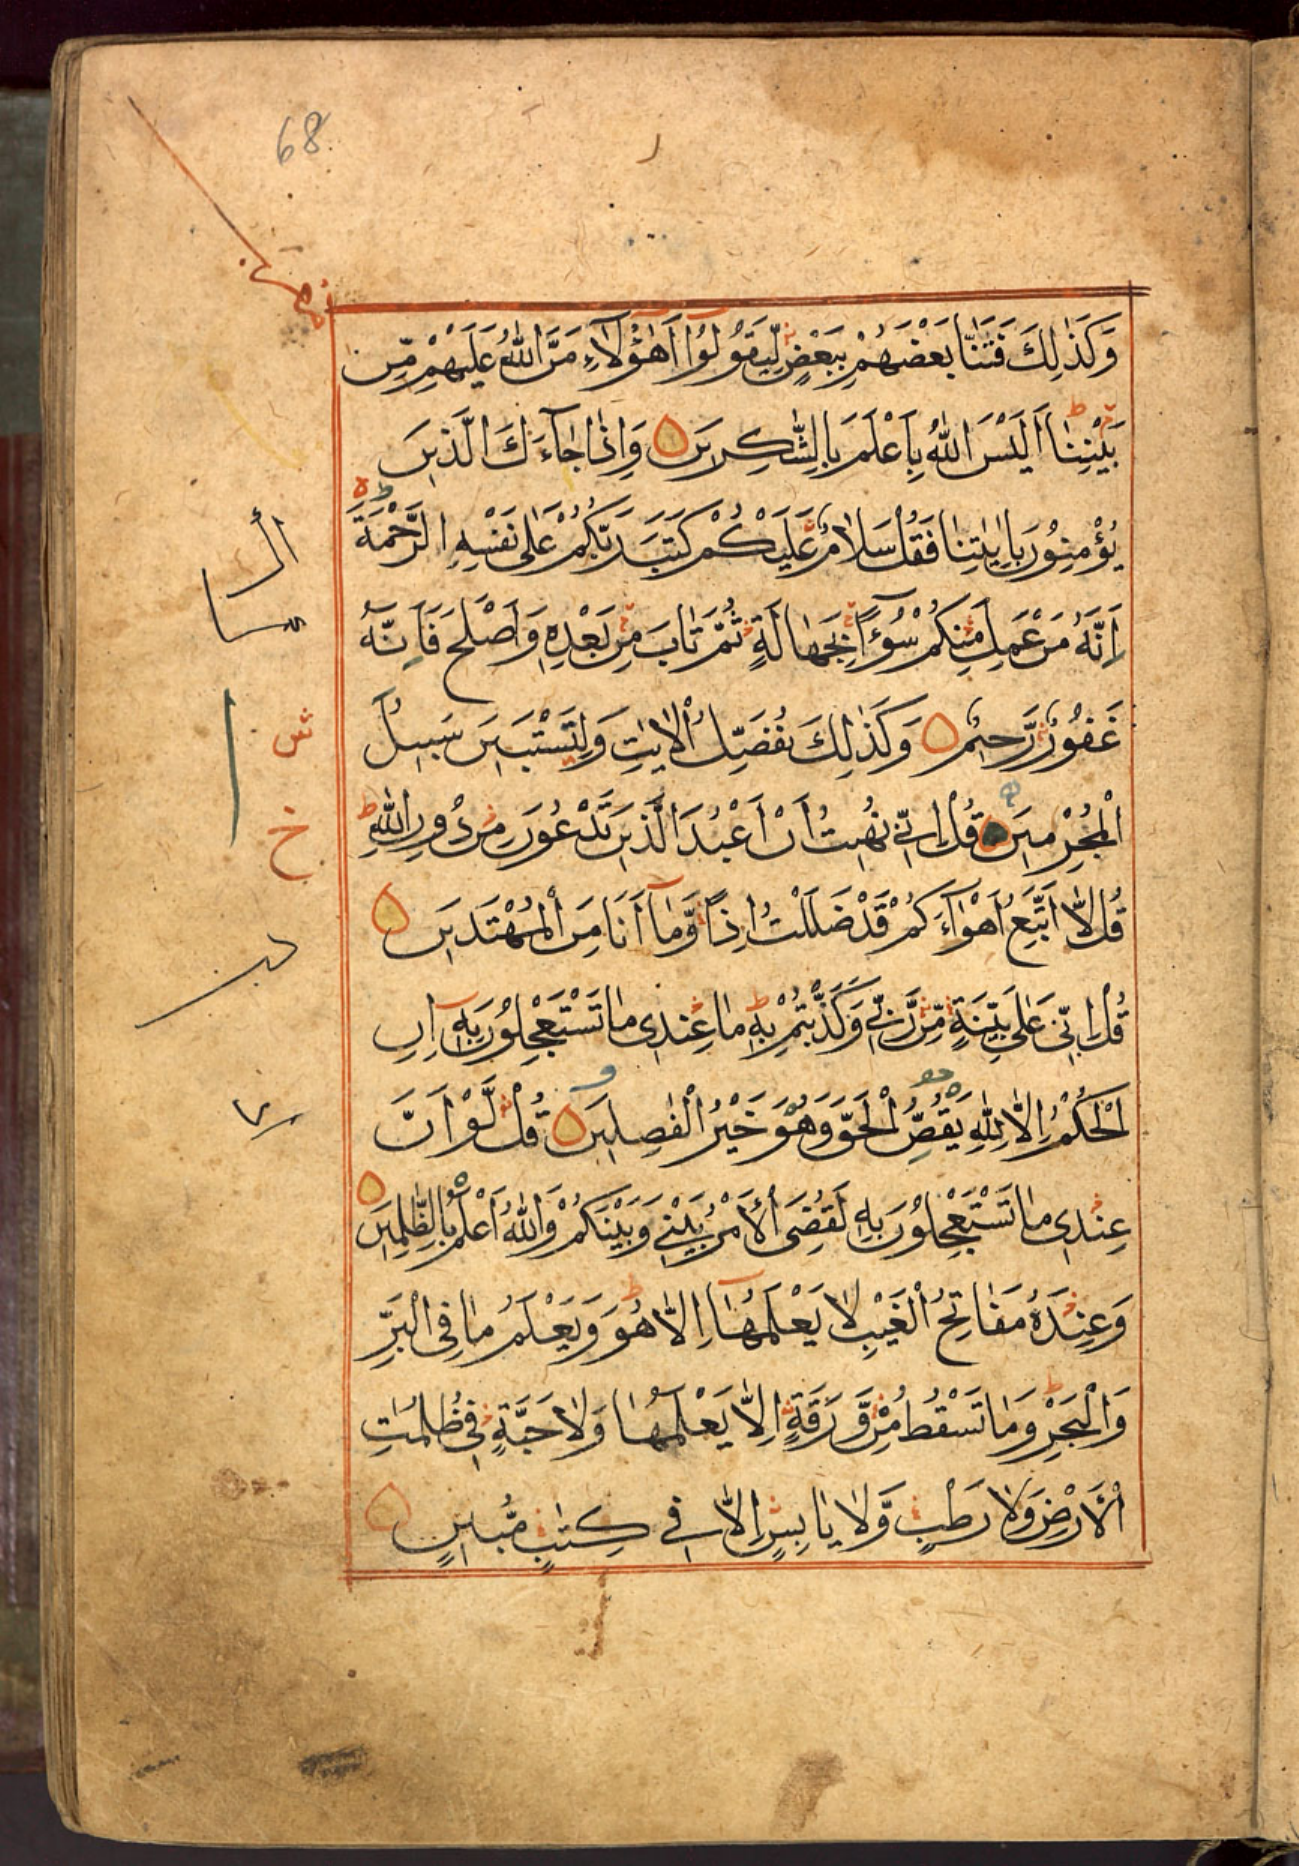 68
وَكَذٰلِكَ فَتَنَّا بَعْضَهُمْ بِبَعْضٍ لِّيَقُوْلُوْا اَهٰٓؤُلَآءِ مَنَّ اللّٰهُ عَلَيْهِمْ مِّنْ
بَيْنِنَا اَلَيْسَ اللّٰهُ بِاَعْلَمَ بِالشّٰكِرِيْنَ وَاِذَا جَآءَكَ الَّذِيْنَ
يُؤْمِنُوْنَ بِاٰيٰتِنَا فَقُلْ سَلَامٌ عَلَيْكُمْ كَتَبَ رَبُّكُمْ عَلٰى نَفْسِهِ الرَّحْمَةَ
اَنَّهُ مَنْ عَمِلَ مِنْكُمْ سُوْٓءًا بِجَهَالَةٍ ثُمَّ تَابَ مِنْ بَعْدِهٖ وَاَصْلَحَ فَاَنَّهُ
غَفُوْرٌ رَّحِيْمٌ وَكَذٰلِكَ نُفَصِّلُ الْاٰيٰتِ وَلِتَسْتَبِيْنَ سَبِيْلُ
الْمُجْرِمِيْنَ قُلْ اِنِّيْ نُهِيْتُ اَنْ اَعْبُدَ الَّذِيْنَ تَدْعُوْنَ مِنْ دُوْنِ اللّٰهِ
قُلْ لَّا اَتَّبِعُ اَهْوَآءَكُمْ قَدْ ضَلَلْتُ اِذًا وَّمَآ اَنَا مِنَ الْمُهْتَدِيْنَ
قُلْ اِنِّيْ عَلٰى بَيِّنَةٍ مِّنْ رَّبِّيْ وَكَذَّبْتُمْ بِهٖ مَا عِنْدِيْ مَا تَسْتَعْجِلُوْنَ بِهٖ اِنِ
الْحُكْمُ اِلَّا لِلّٰهِ يَقُصُّ الْحَقَّ وَهُوَ خَيْرُ الْفٰصِلِيْنَ قُلْ لَّوْ اَنَّ
عِنْدِيْ مَا تَسْتَعْجِلُوْنَ بِهٖ لَقُضِيَ الْاَمْرُ بَيْنِيْ وَبَيْنَكُمْ وَاللّٰهُ اَعْلَمُ بِالظّٰلِمِيْنَ
وَعِنْدَهٗ مَفَاتِحُ الْغَيْبِ لَا يَعْلَمُهَآ اِلَّا هُوَ وَيَعْلَمُ مَا فِي الْبَرِّ
وَالْبَحْرِ وَمَا تَسْقُطُ مِنْ وَّرَقَةٍ اِلَّا يَعْلَمُهَا وَلَا حَبَّةٍ فِيْ ظُلُمٰتِ
الْاَرْضِ وَلَا رَطْبٍ وَّلَا يَابِسٍ اِلَّا فِيْ كِتٰبٍ مُّبِيْنٍ
ش
خ